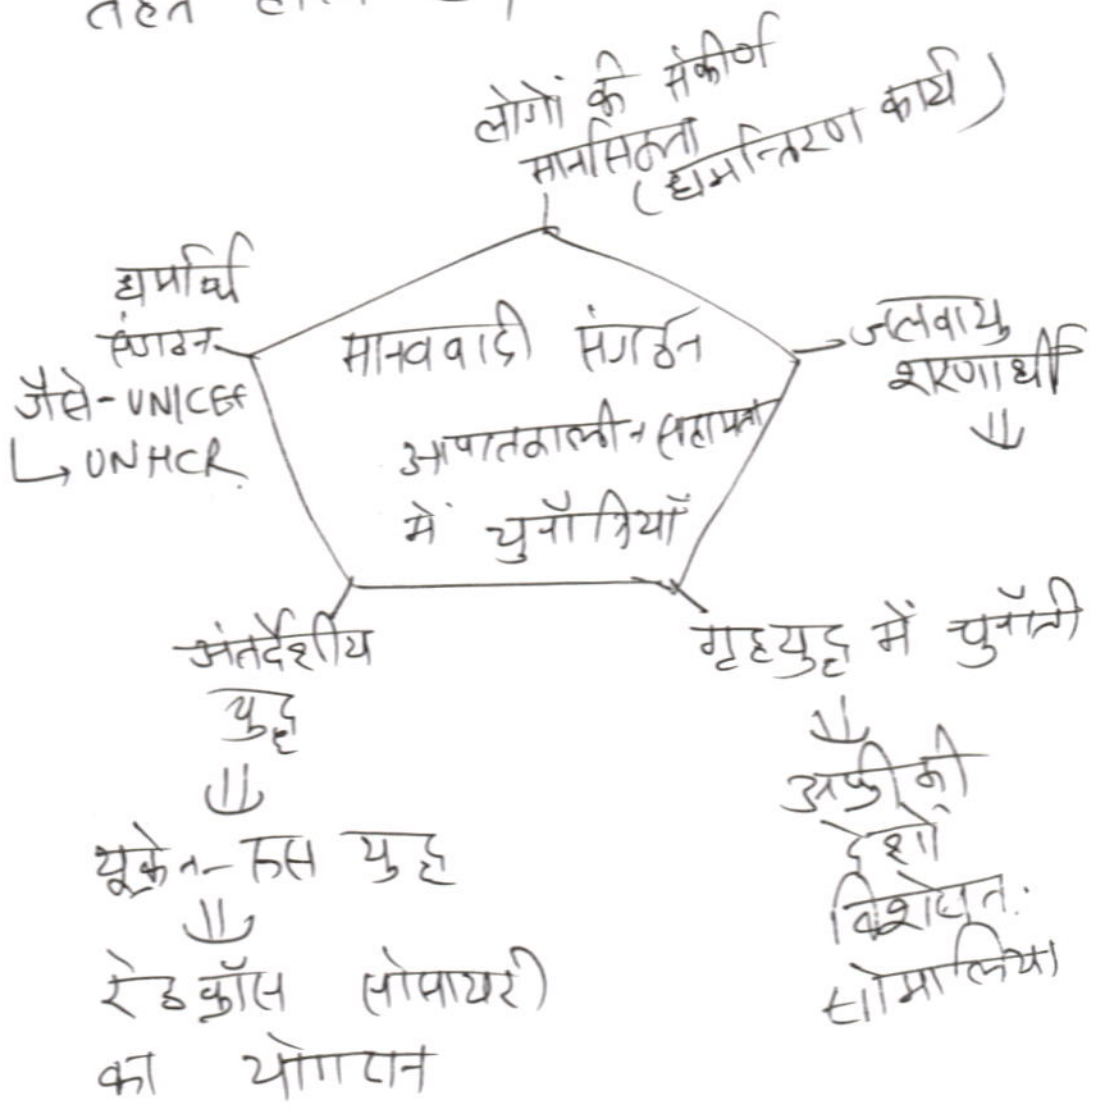 तहत
लोगों के संकीर्ण
मानसिकता
(धर्मान्तरण कार्य)
धर्मार्थ
संगठन
जैसे - UNICEF
↳ UNHCR
मानववादी संगठन
आपातकालीन सहायता
में चुनौतियाँ
जलवायु
शरणार्थी
⇓
अंतर्देशीय
युद्ध
⇓
यूक्रेन - रूस युद्ध
⇓
रेडक्रॉस सोसायटी
का योगदान
गृहयुद्ध में चुनौती
⇓
अफ्रीकी
देशों
विशेषतः
सोमालिया